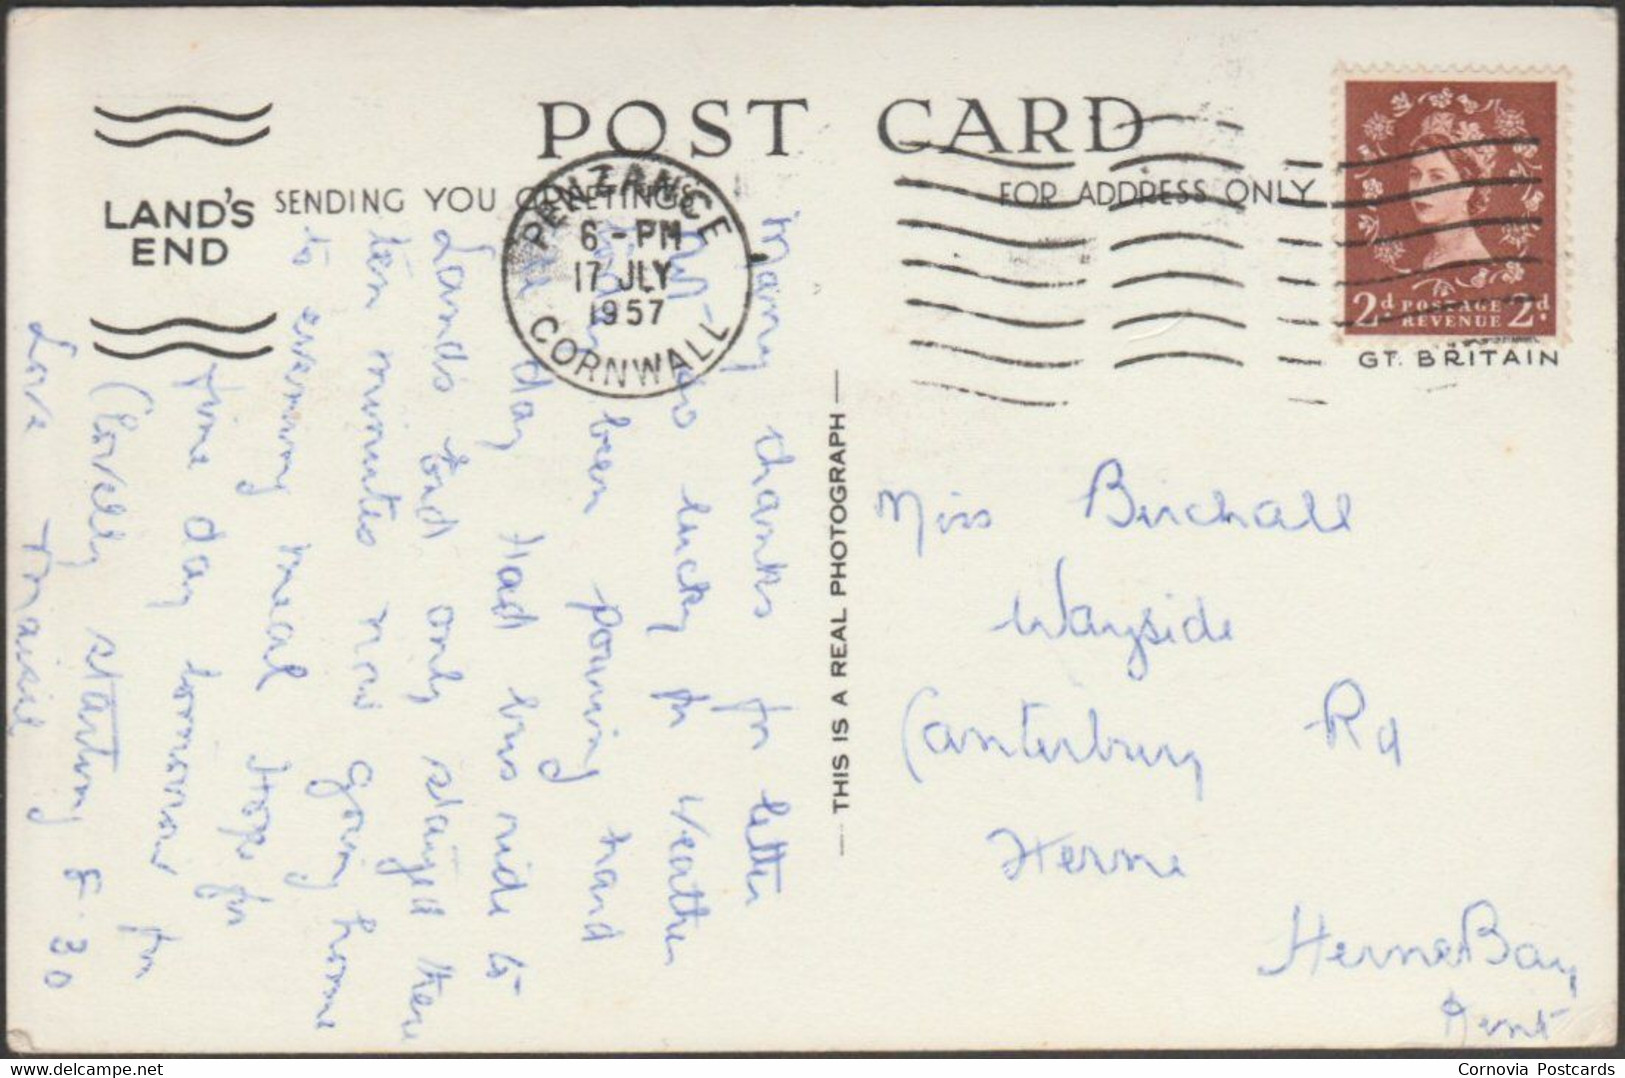 POST CARD
LAND'S
END
SENDING YOU GREETINGS
FOR ADDRESS ONLY
PENZANCE
6-PM
17 JLY
1957
CORNWALL
2d POSTAGE 2d
REVENUE
GT. BRITAIN
Many thanks for letter
so lucky for weather
been pouring hard
all day Had bus ride to
Lands End only stayed there
ten minutes now going home
to evening meal Hope for
fine day tomorrow for
Clovelly starting 8.30
Love Maisie
THIS IS A REAL PHOTOGRAPH
Miss Birchall
Wayside
Canterbury Rd
Herne
Herne Bay
Kent
Cornovia Postcards
www.delcampe.net